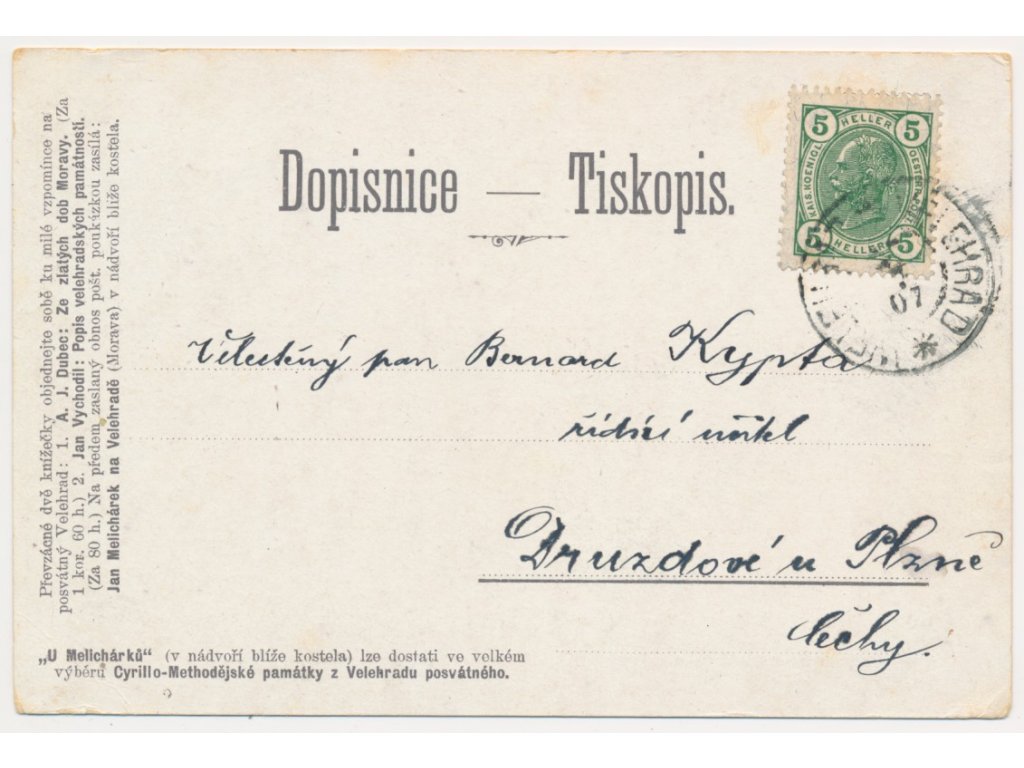 Převzácné dvě knížečky objednejte sobě ku milé vzpomínce na
posvátný Velehrad: 1. A. J. Dubec: Ze zlatých dob Moravy. (Za
1 kor. 60 h.) 2. Jan Vychodil: Popis velehradských památností.
(Za 80 h.) Na předem zaslaný obnos pošt. poukázkou zasílá:
Jan Melichárek na Velehradě (Morava) v nádvoří blíže kostela.
Dopisnice — Tiskopis.
5 HELLER 5
KAIS. KOENIGL. OESTERR. POST
5 HELLER 5
07
Velectěný pan Bernard Kypta
řídící učitel
Druzdové u Plzně
Čechy.
„U Melichárků“ (v nádvoří blíže kostela) lze dostati ve velkém
výběru Cyrillo-Methodějské památky z Velehradu posvátného.